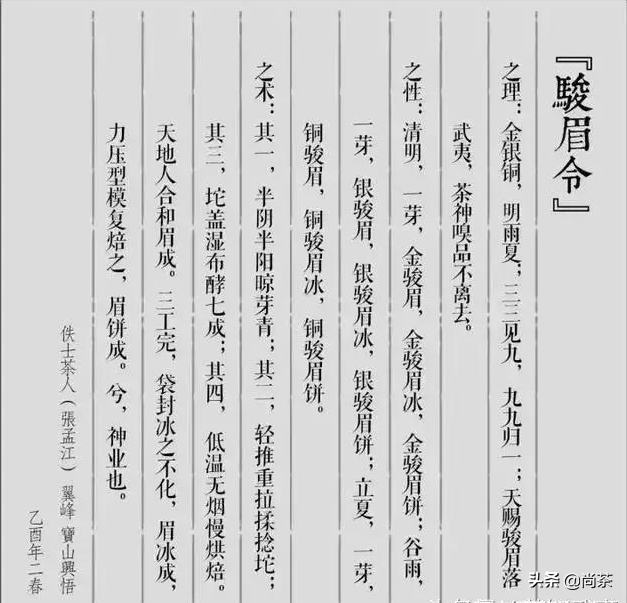 『駿眉令』
之理：金银铜，明雨夏；三三见九，九九归一；天赐骏眉落
武夷，茶神嗅品不离去。
之性：清明，一芽，金骏眉，金骏眉冰，金骏眉饼；谷雨，
一芽，银骏眉，银骏眉冰，银骏眉饼；立夏，一芽，
铜骏眉，铜骏眉冰，铜骏眉饼。
之术：其一，半阴半阳晾芽青；其二，轻推重拉揉捻坨；
其三，坨盖湿布酵七成；其四，低温无烟慢烘焙。
天地人合和眉成。三工完，袋封冰之不化，眉冰成，
力压型模复焙之，眉饼成。兮，神业也。
佚士茶人（張孟江）翼峰 寶山興悟
乙酉年二春
头条 @尚茶